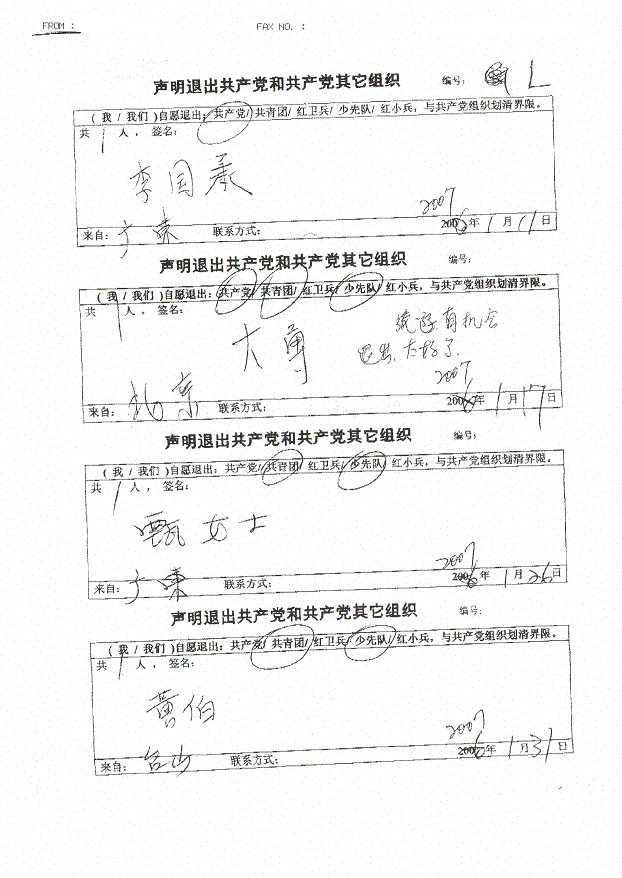 FROM :
FAX NO. :
声明退出共产党和共产党其它组织 编号: L
( 我 / 我们 )自愿退出: 共产党/ 共青团/ 红卫兵/ 少先队/ 红小兵, 与共产党组织划清界限。
共 1 人, 签名:
李国
2007
来自: 广東 联系方式: 2006年 1 月 11 日
声明退出共产党和共产党其它组织 编号:
( 我 / 我们 )自愿退出: 共产党/ 共青团/ 红卫兵/ 少先队/ 红小兵, 与共产党组织划清界限。
共 1 人, 签名:
有机会
大勇 退出, 太好了.
2007
来自: 北京 联系方式: 2006年 1 月 17 日
声明退出共产党和共产党其它组织 编号:
( 我 / 我们 )自愿退出: 共产党/ 共青团/ 红卫兵/ 少先队/ 红小兵, 与共产党组织划清界限。
共 1 人, 签名:
甄女士
2007
来自: 广東 联系方式: 2006年 1 月 26 日
声明退出共产党和共产党其它组织 编号:
( 我 / 我们 )自愿退出: 共产党/ 共青团/ 红卫兵/ 少先队/ 红小兵, 与共产党组织划清界限。
共 1 人, 签名:
黄伯
2007
来自: 台山 联系方式: 2006年 1 月 31 日